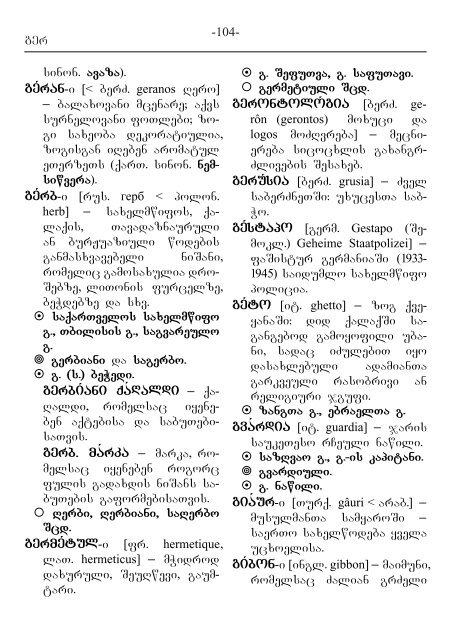 -104-
გერ
სინონ. ავაზა).
გერან-ი [< ბერძ. geranos ღერო]
– ბალახოვანი მცენარე; აქვს
სურნელოვანი ფოთლები; ზო-
გი სახეობა დეკორატიულია,
ზოგისგან იღებენ არომატულ
ეთერზეთს (ქართ. სინონ. ნემ-
სიწვერა).
გერბ-ი [რუს. герб < პოლონ.
herb] – სახელმწიფოს, ქა-
ლაქის, თავადაზნაურული
ან ბურჟუაზიული წოდების
განმასხვავებელი ნიშანი,
რომელიც გამოსახულია დრო-
შებზე, ლითონის ფურცელზე,
ბეჭდებზე და სხვ.
⊙ საქართველოს სახელმწიფო
გ., თბილისის გ., საგვარეულო
გ.
◎ გერბიანი და საგერბო.
⊙ გ. (ს.) ბეჭედი.
გერბიანი ქაღალდი – ქა-
ღალდი, რომელსაც იყენე-
ბენ აქტებისა და საბუთები-
სათვის.
გერბ. მარკა – მარკა, რო-
მელსაც იყენებენ როგორც
ფულის გადახდის ნიშანს სა-
ბუთების გაფორმებისათვის.
○ ღერბი, ღერბიანი, საღერბო
შცდ.
გერმეტულ-ი [ფრ. hermetique,
ლათ. hermeticus] – მჭიდროდ
დახურული, შეუღწევი, გაუმ-
ტარი.
⊙ გ. შეფუთვა, გ. საფუთავი.
○ გერმეტიული შცდ.
გერონტოლოგია [ბერძ. ge-
rôn (gerontos) მოხუცი და
logos მოძღვრება] – მეცნი-
ერება სიცოცხლის გახანგრ-
ძლივების შესახებ.
გერუსია [ბერძ. grusia] – ძველ
საბერძნეთში: უხუცესთა საბ-
ჭო.
გესტაპო [გერმ. Gestapo (შე-
მოკლ.) Geheime Staatpolizei] –
ფაშისტურ გერმანიაში (1933-
1945) საიდუმლო სახელმწიფო
პოლიცია.
გეტო [იტ. ghetto] – ზოგ ქვე-
ყანაში: დიდ ქალაქში სა-
განგებოდ გამოყოფილი უბა-
ნი, სადაც იძულებით იყო
დასახლებული ადამიანთა
გარკვეული რასობრივი ან
რელიგიური ჯგუფი.
⊙ ზანგთა გ., ებრაელთა გ.
გვარდია [იტ. guardia] – ჯარის
საუკეთესო რჩეული ნაწილი.
⊙ საზღვაო გ., გ.-ის კაპიტანი.
◎ გვარდიული.
⊙ გ. ნაწილი.
გიაურ-ი [თურქ. gâuri < არაბ.] –
მუსულმანთა სამყაროში –
საერთო სახელწოდება ყველა
უცხოელისა.
გიბონ-ი [ინგლ. gibbon] – მაიმუნი,
რომელსაც ძალიან გრძელი